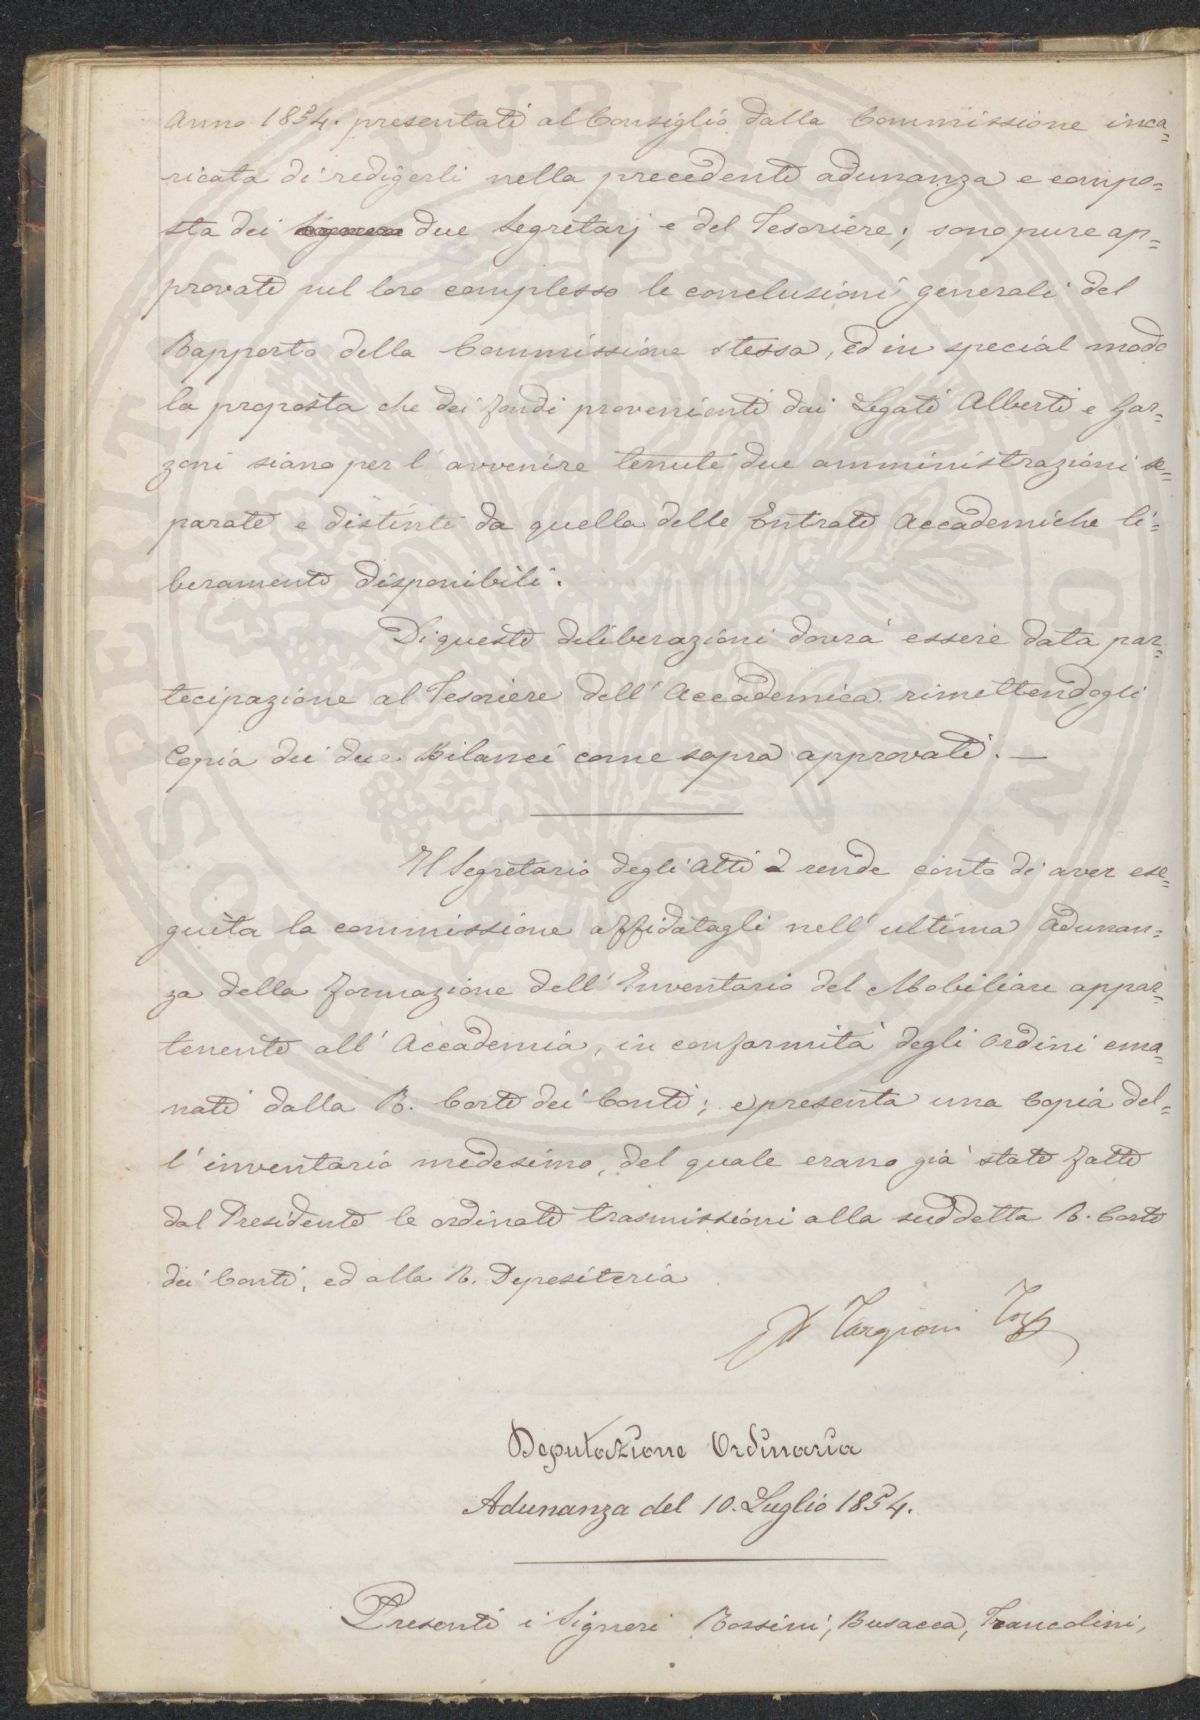 Anno 1854. presentati al Consiglio dalla Commissione inca=
ricata di redigerli nella precedente adunanza e compo=
sta dei due Segretarj e del Tesoriere; sono pure ap=
provate nel loro complesso le conclusioni generali del
Rapporto della Commissione stessa, ed in special modo
la proposta che dei fondi provenienti dai Legati Alberti e Gar=
zoni siano per l'avvenire tenute due amministrazioni se=
parate e distinte da quella delle Entrate Accademiche li=
beramente disponibili.
Di queste deliberazioni dovrà essere data par=
tecipazione al Tesoriere dell'Accademica rimettendogli
Copia dei due Bilanci come sopra approvati. —
Il Segretario degli Atti rende conto di aver ese=
guita la commissione affidatagli nell'ultima Adunan=
za della formazione dell'Inventario del Mobiliare appar=
tenente all'Accademia, in conformità degli Ordini ema=
nati dalla R. Corte dei Conti; e presenta una Copia del=
l'inventario medesimo, del quale erano già state fatte
dal Presidente le ordinate trasmissioni alla suddetta R. Corte
dei Conti, ed alla R. Depositeria
Targioni Tozz
Deputazione Ordinaria
Adunanza del 10. Luglio 1854.
Presenti i Signori Rossini, Busacca, Francolini,
PUBLICAE
PROSPERITATI